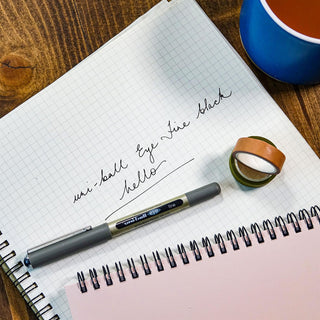 uni-ball Eye Fine black
hello
uni-ball eye fine